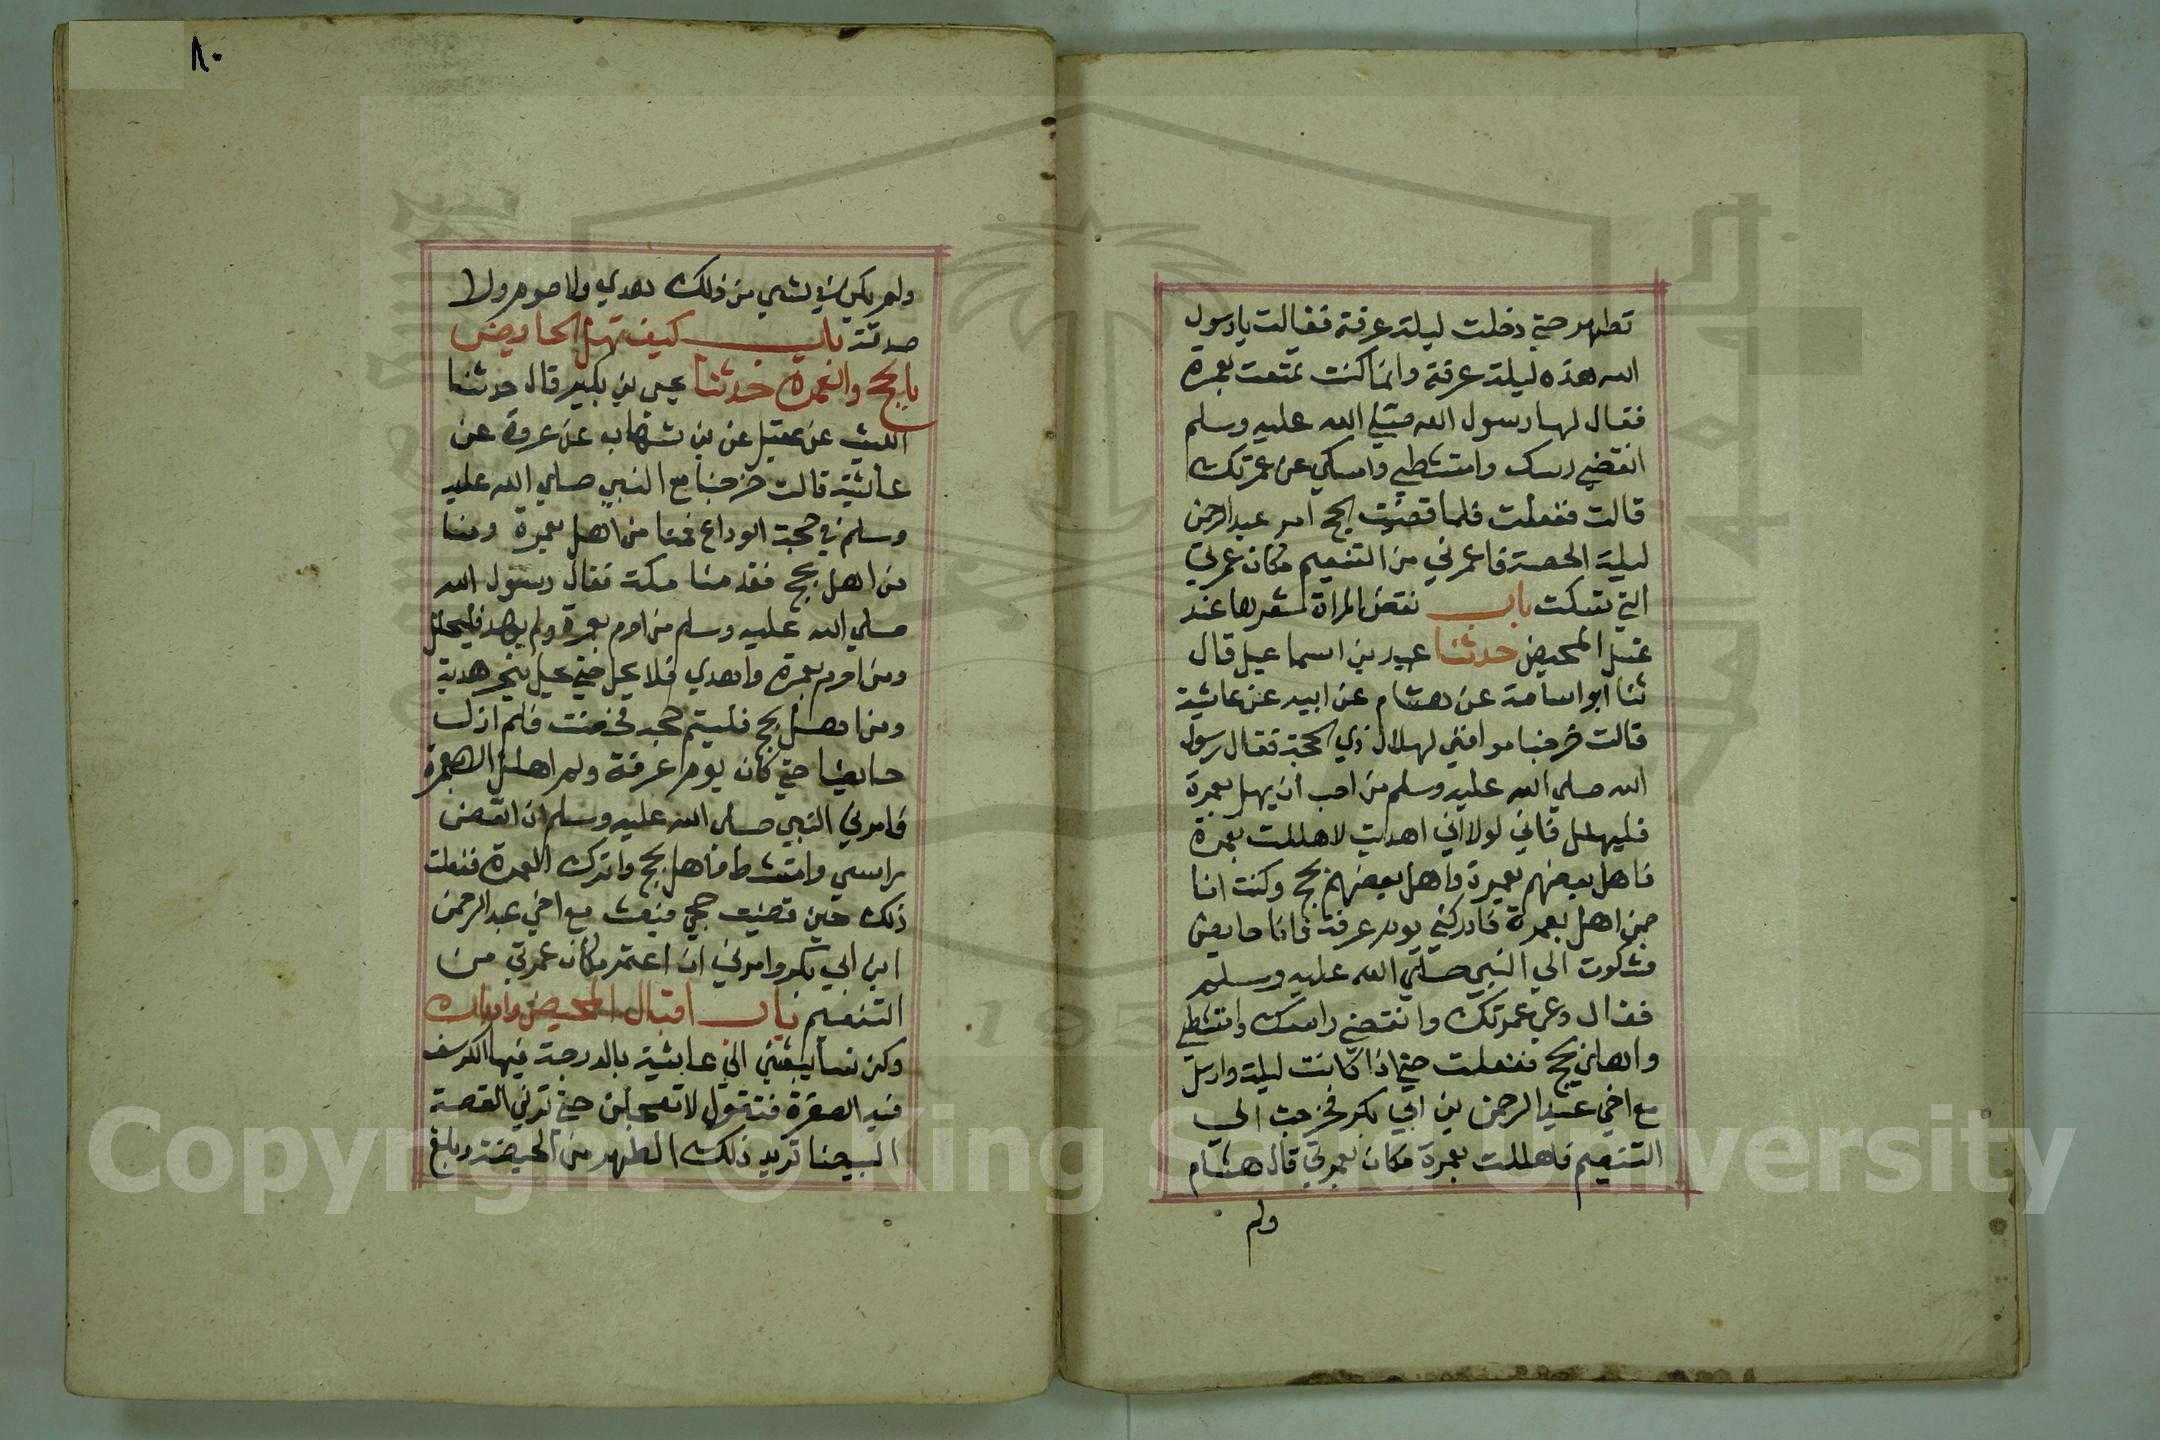 تطهر حتي دخلت ليلة عرفة فقالت يا رسول
الله هذه ليلة عرفة وانما كنت تمتعت بعمرة
فقال لها رسول الله صلي الله عليه وسلم
انقضي راسك وامتشطي وامسكي عن عمرتك
قالت ففعلت فلما قضيت الحج امر عبد الرحمن
ليلة الحصبة فاعمرني من التنعيم مكان عمرتي
التي نسكت باب نقض المراة شعرها عند
غسل المحيض حدثنا عبيد بن اسماعيل قال
ثنا ابو اسامة عن هشام عن ابيه عن عايشة
قالت خرجنا موافين لهلال ذي الحجة فقال رسول
الله صلي الله عليه وسلم من احب ان يهل بعمرة
فليهلل فاني لولا اني اهديت لاهللت بعمرة
فاهل بعضهم بعمرة واهل بعضهم بحج وكنت انا
ممن اهل بعمرة فادركني يوم عرفة وانا حايض
فشكوت الي النبي صلي الله عليه وسلم
فقال دعي عمرتك وانقضي راسك وامتشطي
واهلي بحج ففعلت حتي اذا كانت ليلة وارسل
مع اخي عبد الرحمن بن ابي بكر فخرجت الي
التنعيم فاهللت بعمرة مكان عمرتي قال هشام
ولم
٨٠
ولم يكن في شي من ذلك هدي ولا صوم ولا
صدقة باب كيف تهل الحايض
بالحج والعمرة حدثنا يحيي بن بكير قال حدثنا
الليث عن عقيل عن بن شهاب عن عروة عن
عائشة قالت خرجنا مع النبي صلي الله عليه
وسلم في حجة الوداع فمنا من اهل بعمرة ومنا
من اهل بحج فقدمنا مكة فقال رسول الله
صلي الله عليه وسلم من احرم بعمرة ولم يهد فليحلل
ومن احرم بعمرة واهدي فلا يحل حتي يحل بنحر هديه
ومن اهل بحج فليتم حجه فحضت فلم ازل
حايضا حتي كان يوم عرفة ولم اهلل الا بعمرة
فامرني النبي صلي الله عليه وسلم ان انقض
راسي وامتشط فاهل بحج واترك العمرة ففعلت
ذلك حين قضيت حجي فبعث مع اخي عبد الرحمن
ابن ابي بكر وامرني ان اعتمر مكان عمرتي من
التنعيم باب اقبال المحيض وادباره
وكن نسا يبعثن الي عايشة بالدرجة فيها الكرسف
فيه الصفرة فتقول لا تعجلن حتي ترين القصة
البيضا تريد ذلك الطهر من الحيضة وبلغ
Copyright © King Saud University